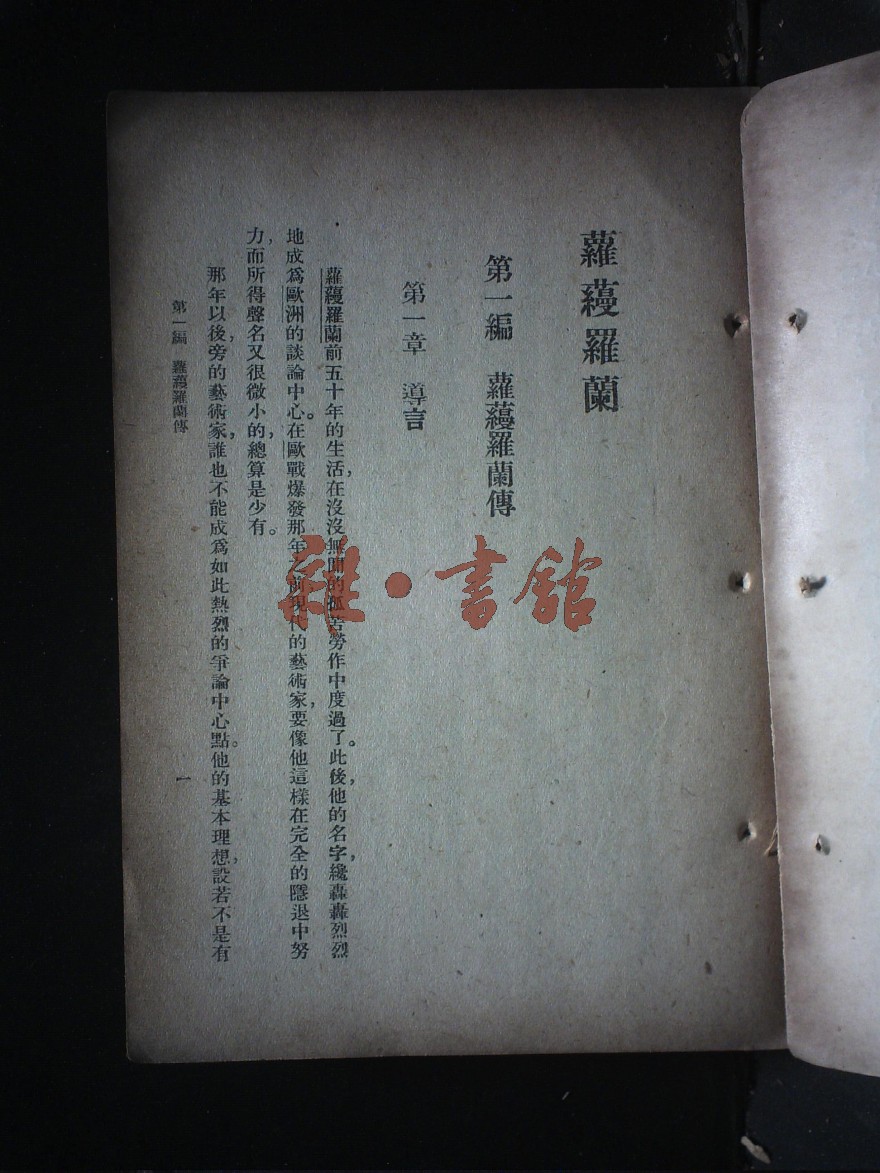 蘿蔓羅蘭
第一編　蘿蔓羅蘭傳
第一章　導言
蘿蔓羅蘭前五十年的生活，在沒沒無聞的孤苦勞作中度過了。此後，他的名字，纔轟轟烈烈
地成爲歐洲的談論中心。在歐戰爆發那年前，現代的藝術家，要像他這樣在完全的隱退中努
力，而所得聲名又很微小的，總算是少有。
那年以後，旁的藝術家，誰也不能成爲如此熱烈的爭論中心點。他的基本理想，設若不是有
第一編　蘿蔓羅蘭傳
一
雜·書館